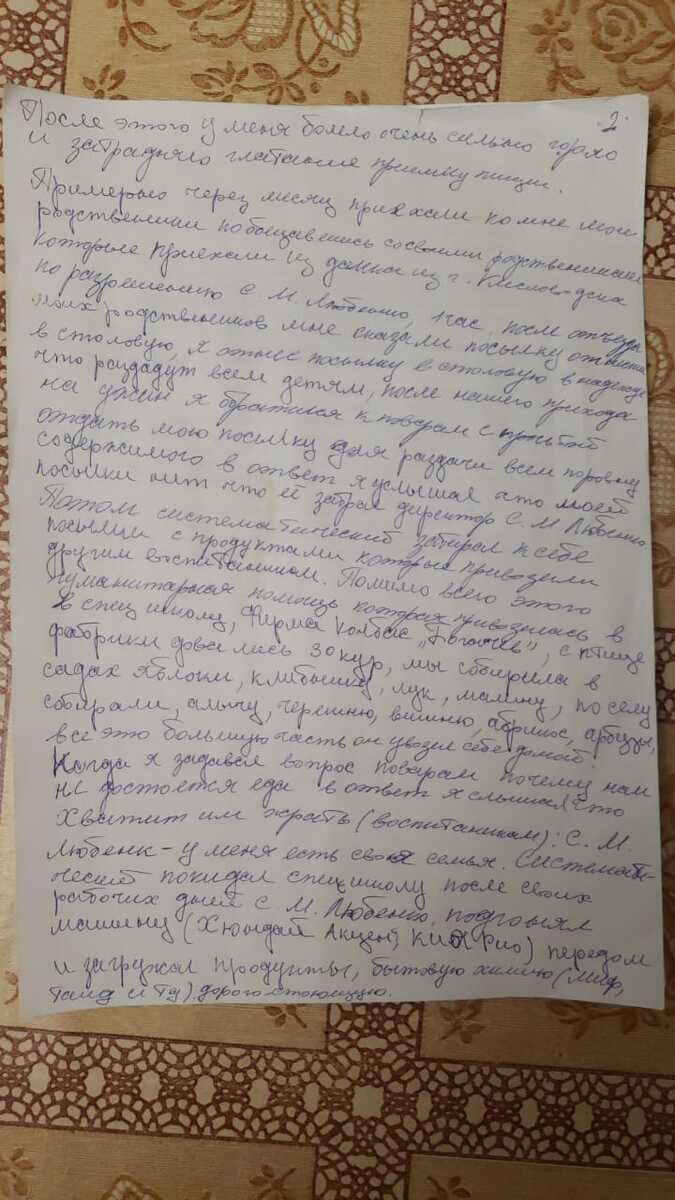 2
После этого у меня болело очень сильно горло
и затрадняло глатание приёму пищи.
Примерно через месяц приехали ко мне мои
родственники пообщавшись со своими родственниками
которые приехали из далека из г. Кисловодска
по разрешению С. М. Любенко, 1 час, после отъезда
моих родственников мне сказали посылку отнести
в столовую, я отнёс посылку в столовую в надежде
что раздадут всем детям, после нашего прихода
на ужин я обратился к поварам с просьбой
отдать мою посылку для раздачи всем поровну
содержимого в ответ я услышал что моей
посылки нет что её забрал директор С. М. Любенко.
Потом систематический забирал к себе
посылки с продуктами которые привозили
другим воспитанником. Помимо всего этого
гуманитарная помощь которая привозилась в
в спец школу, Фирма Колбас „Богачёв", с птице
фабрики довались 30 кур, мы собирали в
садах яблоки, клубнику, лук, малину, по селу
собирали, алычу, черешню, вишню, абрикос, арбузы,
все это большую часть он увозил себе домой.
Когда я задавал вопрос поварам почему нам
не достоётся еда в ответ я слышал что
Хватит им жрать (воспитаникам): С. М.
Любенк - у меня есть своя семья. Системати-
ческий покидал спец школу после своих
рабочих дней С. М. Любенко, подгонял
машину (Хюндай Акцент, Киа Рио) передом
и загружал продукты, бытовую химию (миф,
таид и тд) дорого-стоющую.